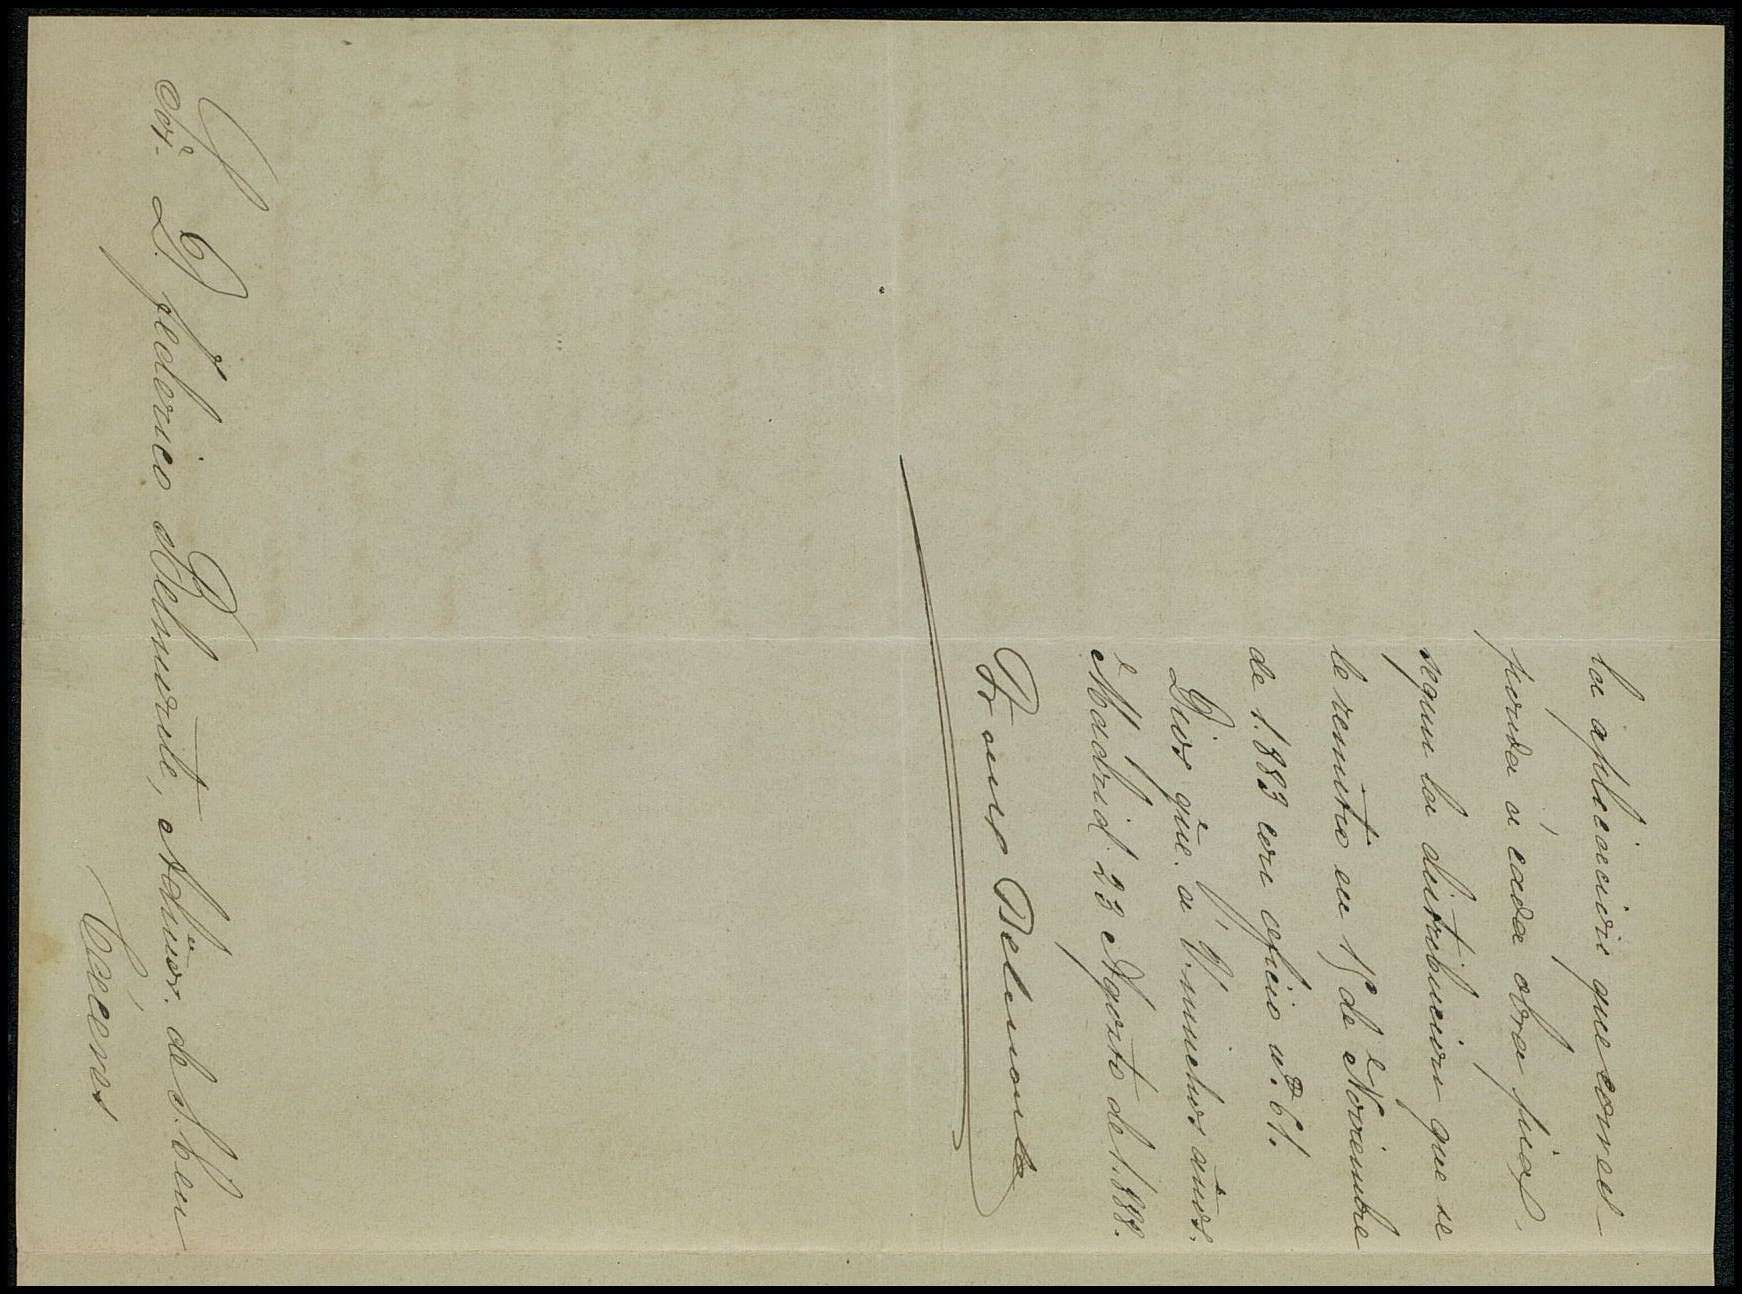 la aplicacion que corres-
ponda á cada obra pia,
segun la distribucion que se
le remitió en 15 de Noviembre
de 1.883 con oficio nº. 61.
Dios gûe. á V. muchos años.
Madrid 23 Agosto de 1.888.
Franco Belmonte
Sor. D. Federico Belmonte, Admor. de S. E. en
Cáceres